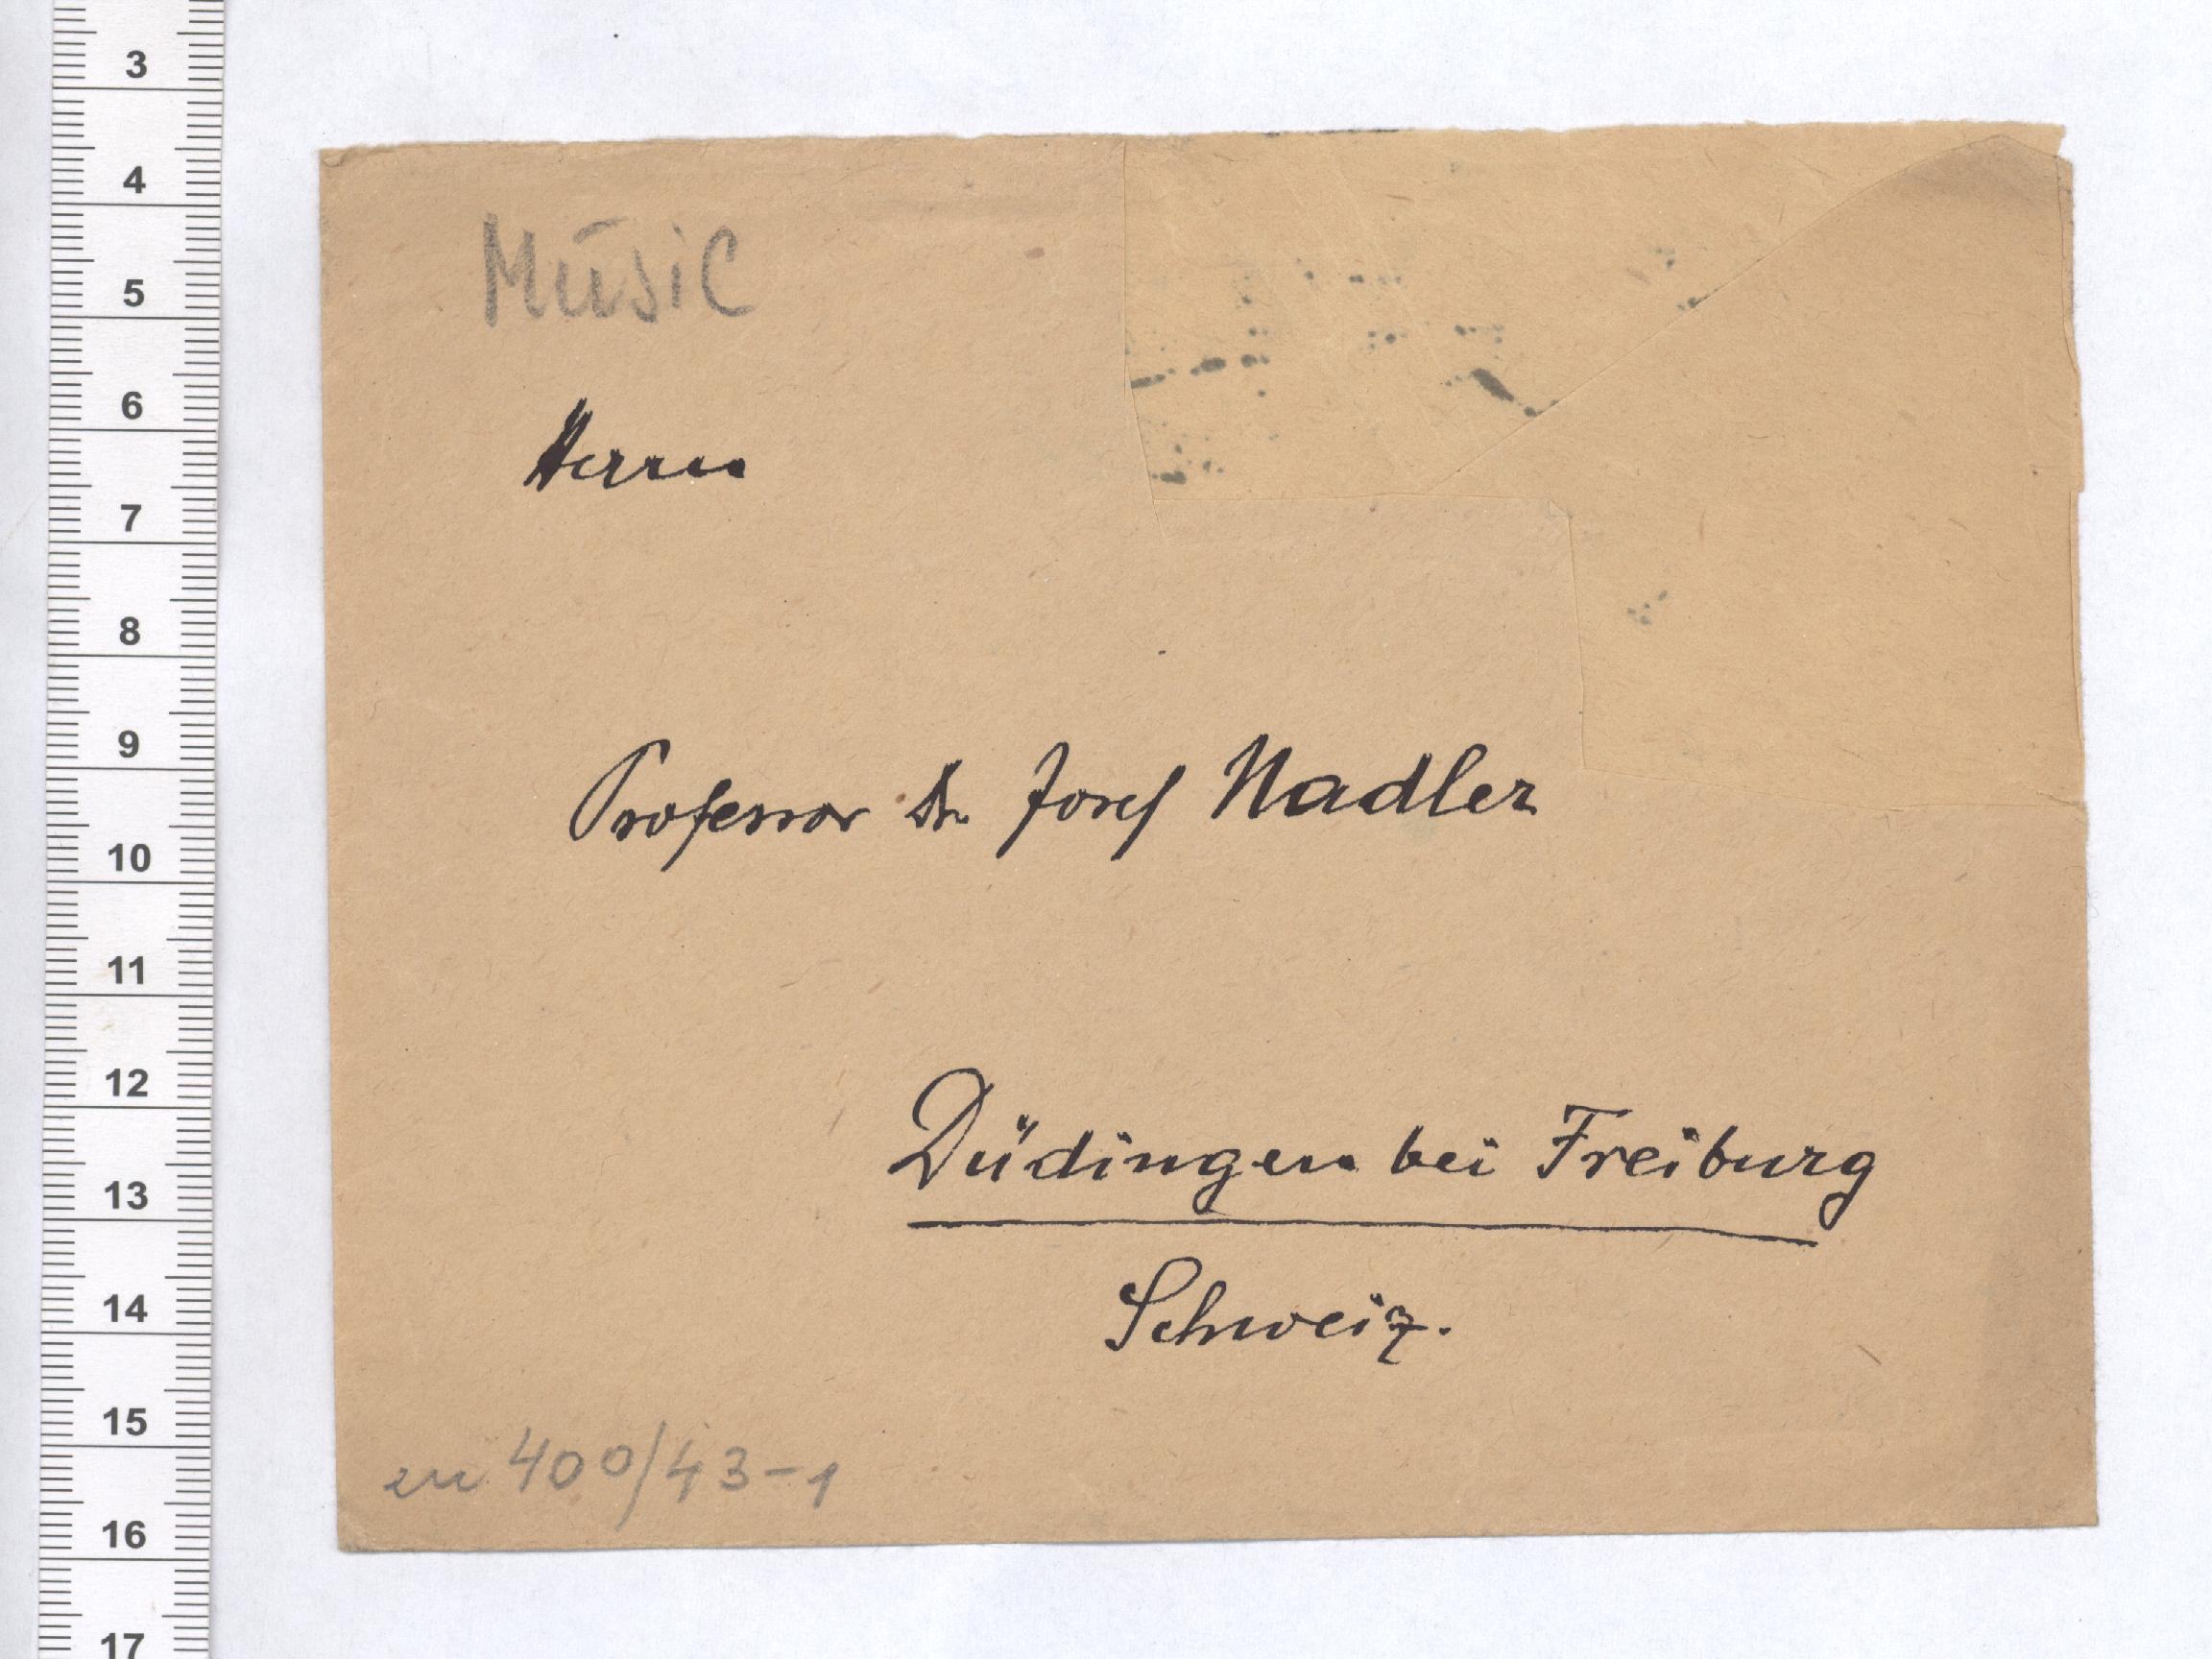 Mūsic
Herrn
Professor Dr. Josef Nadler
Düdingen bei Freiburg
Schweiz.
zu 400/43-1
3
4
5
6
7
8
9
10
11
12
13
14
15
16
17